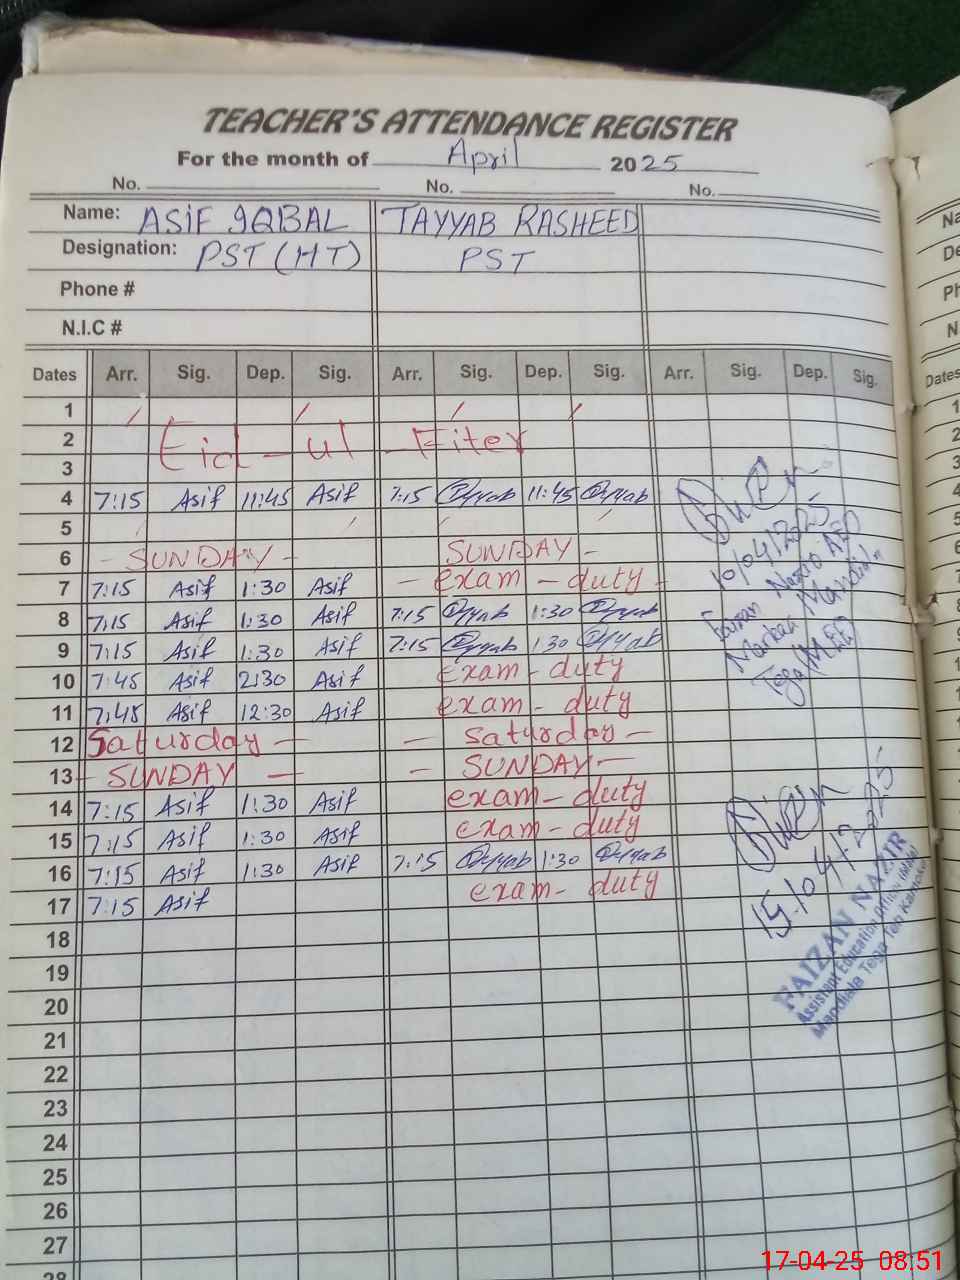 TEACHER'S ATTENDANCE REGISTER
For the month of April 2025
No. No. No.
Name: ASIF IQBAL TAYYAB RASHEED
Designation: PST (HT) PST
Phone #
N.I.C #
Dates Arr. Sig. Dep. Sig. Arr. Sig. Dep. Sig. Arr. Sig. Dep. Sig.
1
2 Eid - ul - Fiter
3
4 7:15 Asif 11:45 Asif 7:15 11:45
5
6 - SUNDAY - SUNDAY -
7 7:15 Asif 1:30 Asif - exam - duty -
8 7:15 Asif 1:30 Asif 7:15 1:30
9 7:15 Asif 1:30 Asif 7:15 1:30
10 7:45 Asif 2:30 Asif exam - duty
11 7:45 Asif 12:30 Asif exam - duty
12 Saturday - - Saturday -
13 - SUNDAY - - SUNDAY -
14 7:15 Asif 1:30 Asif exam - duty
15 7:15 Asif 1:30 Asif exam - duty
16 7:15 Asif 1:30 Asif 7:15 1:30
17 7:15 Asif exam - duty
18
19
20
21
22
23
24
25
26
27
28
10/04/2025
Faizan Nazir AEO
Markaz
15/04/2025
FAIZAN NAZIR
Assistant Education Officer
Na
De
Ph
N
Dates
1
2
3
4
17-04-25 08:51